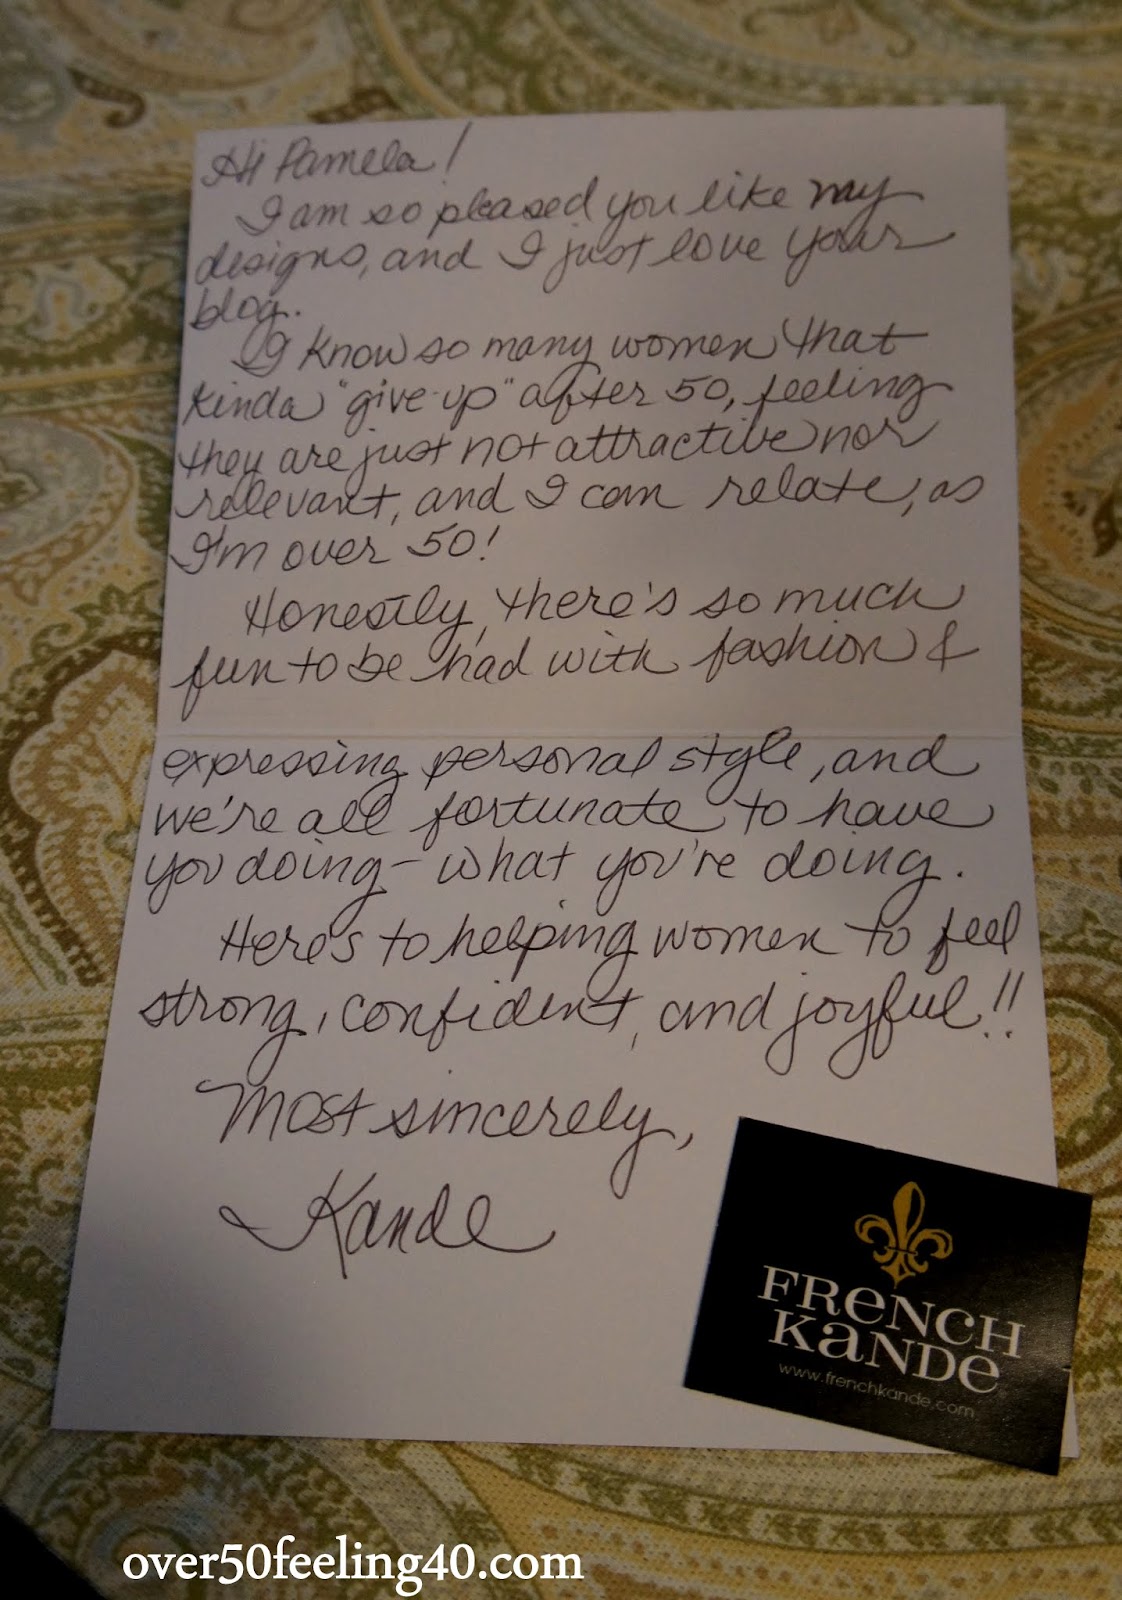 Hi Pamela!
I am so pleased you like my
designs, and I just love your
blog.
I know so many women that
kinda "give-up" after 50, feeling
they are just not attractive nor
relevant, and I can relate, as
I'm over 50!
Honestly, there's so much
fun to be had with fashion &
expressing personal style, and
we're all fortunate to have
you doing - what you're doing.
Here's to helping women to feel
strong, confident, and joyful!!
Most sincerely,
Kande
FRENCH
KANDE
www.frenchkande.com
over50feeling40.com